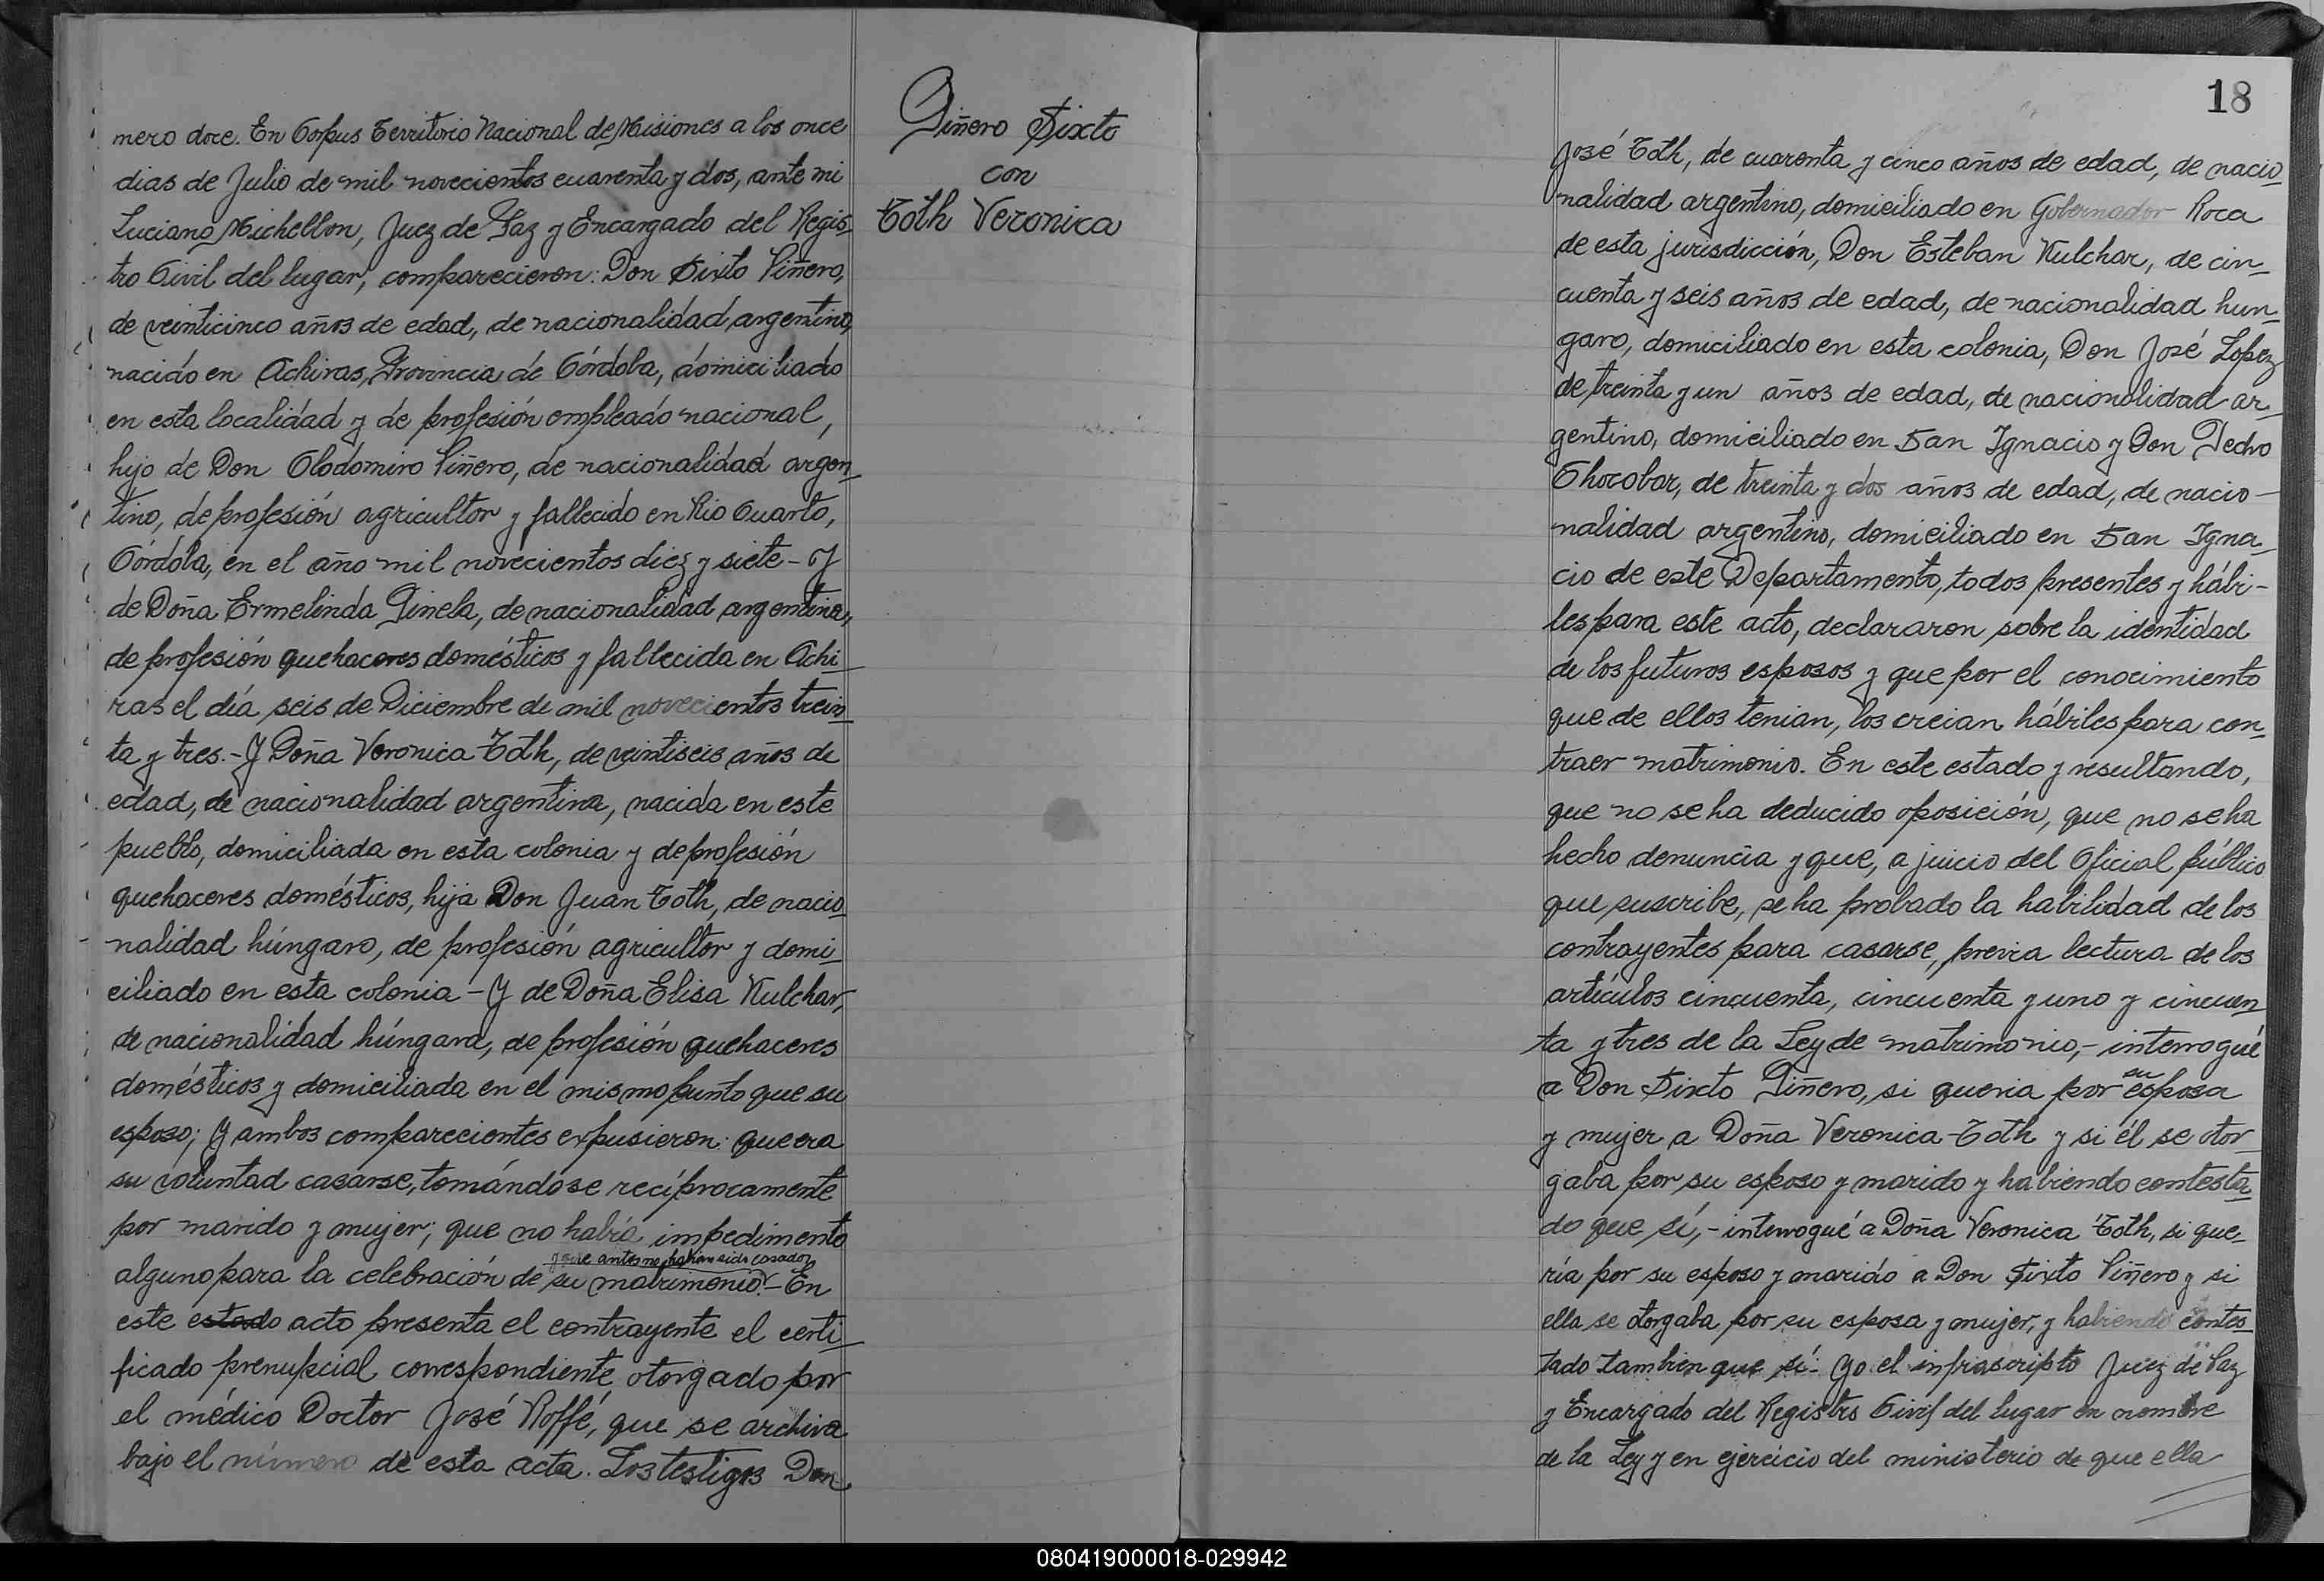 mero doce. En Corpus Territorio Nacional de Misiones a los once
dias de Julio de mil novecientos cuarenta y dos, ante mi
Luciano Michellon, Juez de Paz y Encargado del Regis-
tro Civil del lugar, comparecieron: Don Sixto Piñero,
de veinticinco años de edad, de nacionalidad argentino,
nacido en Achiras, Provincia de Córdoba, domiciliado
en esta localidad y de profesión empleado nacional,
hijo de Don Clodomiro Piñero, de nacionalidad argen-
tino, de profesión agricultor y fallecido en Rio Cuarto,
Córdoba, en el año mil novecientos diez y siete - Y
de Doña Ermelinda Pinela, de nacionalidad argentina,
de profesión quehaceres domésticos y fallecida en Achi-
ras el día seis de Diciembre de mil novecientos trein-
ta y tres.- Y Doña Veronica Toth, de veintiseis años de
edad, de nacionalidad argentina, nacida en este
pueblo, domiciliada en esta colonia y de profesión
quehaceres domésticos, hija Don Juan Toth, de nacio-
nalidad húngaro, de profesión agricultor y domi-
ciliado en esta colonia - Y de Doña Elisa Kulchar,
de nacionalidad húngara, de profesión quehaceres
domésticos y domiciliada en el mismo punto que su
esposo; Y ambos comparecientes expusieron: que era
su voluntad casarse, tomándose recíprocamente
por marido y mujer; que no había impedimento
y que antes no habian sido casados
alguno para la celebración de su matrimonio.- En
este estado acto presenta el contrayente el certi-
ficado prenupcial correspondiente otorgado por
el médico Doctor José Roffé, que se archiva
bajo el número de esta acta. Los testigos Don
Piñero Sixto
con
Toth Veronica
18
José Toth, de cuarenta y cinco años de edad, de nacio-
nalidad argentino, domiciliado en Gobernador Roca
de esta jurisdicción, Don Esteban Kulchar, de cin-
cuenta y seis años de edad, de nacionalidad hun-
garo, domiciliado en esta colonia, Don José Lopez
de treinta y un años de edad, de nacionalidad ar-
gentino, domiciliado en San Ignacio y Don Pedro
Chocobar, de treinta y dos años de edad, de nacio-
nalidad argentino, domiciliado en San Igna-
cio de este Departamento, todos presentes y hábi-
les para este acto, declararon sobre la identidad
de los futuros esposos y que por el conocimiento
que de ellos tenian, los creian hábiles para con-
traer matrimonio. En este estado y resultando,
que no se ha deducido oposición, que no se ha
hecho denuncia y que, a juicio del Oficial público
que suscribe, se ha probado la habilidad de los
contrayentes para casarse, previa lectura de los
artículos cincuenta, cincuenta y uno y cincuen-
ta y tres de la Ley de matrimonio,- interrogué
su
a Don Sixto Piñero, si queria por esposa
y mujer a Doña Veronica Toth y si él se otor-
gaba por su esposo y marido y habiendo contesta-
do que sí,- interrogué a Doña Veronica Toth, si que-
ría por su esposo y marido a Don Sixto Piñero y si
ella se otorgaba por su esposa y mujer, y habiendo contes-
tado tambien que sí- Yo el infrascripto Juez de Paz
y Encargado del Registro Civil del lugar en nombre
de la Ley y en ejercicio del ministerio de que ella
080419000018-029942